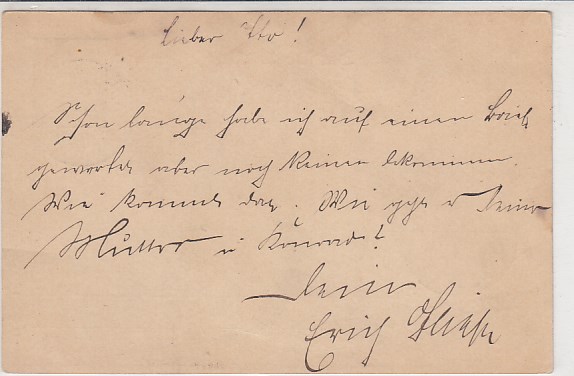 Lieber Otto!
Schon lange habe ich auf einen Brief
gewartet aber noch keinen bekommen.
Wie kommt das. Wie geht es Deiner
Mutter u Konrad?
Dein
Erich